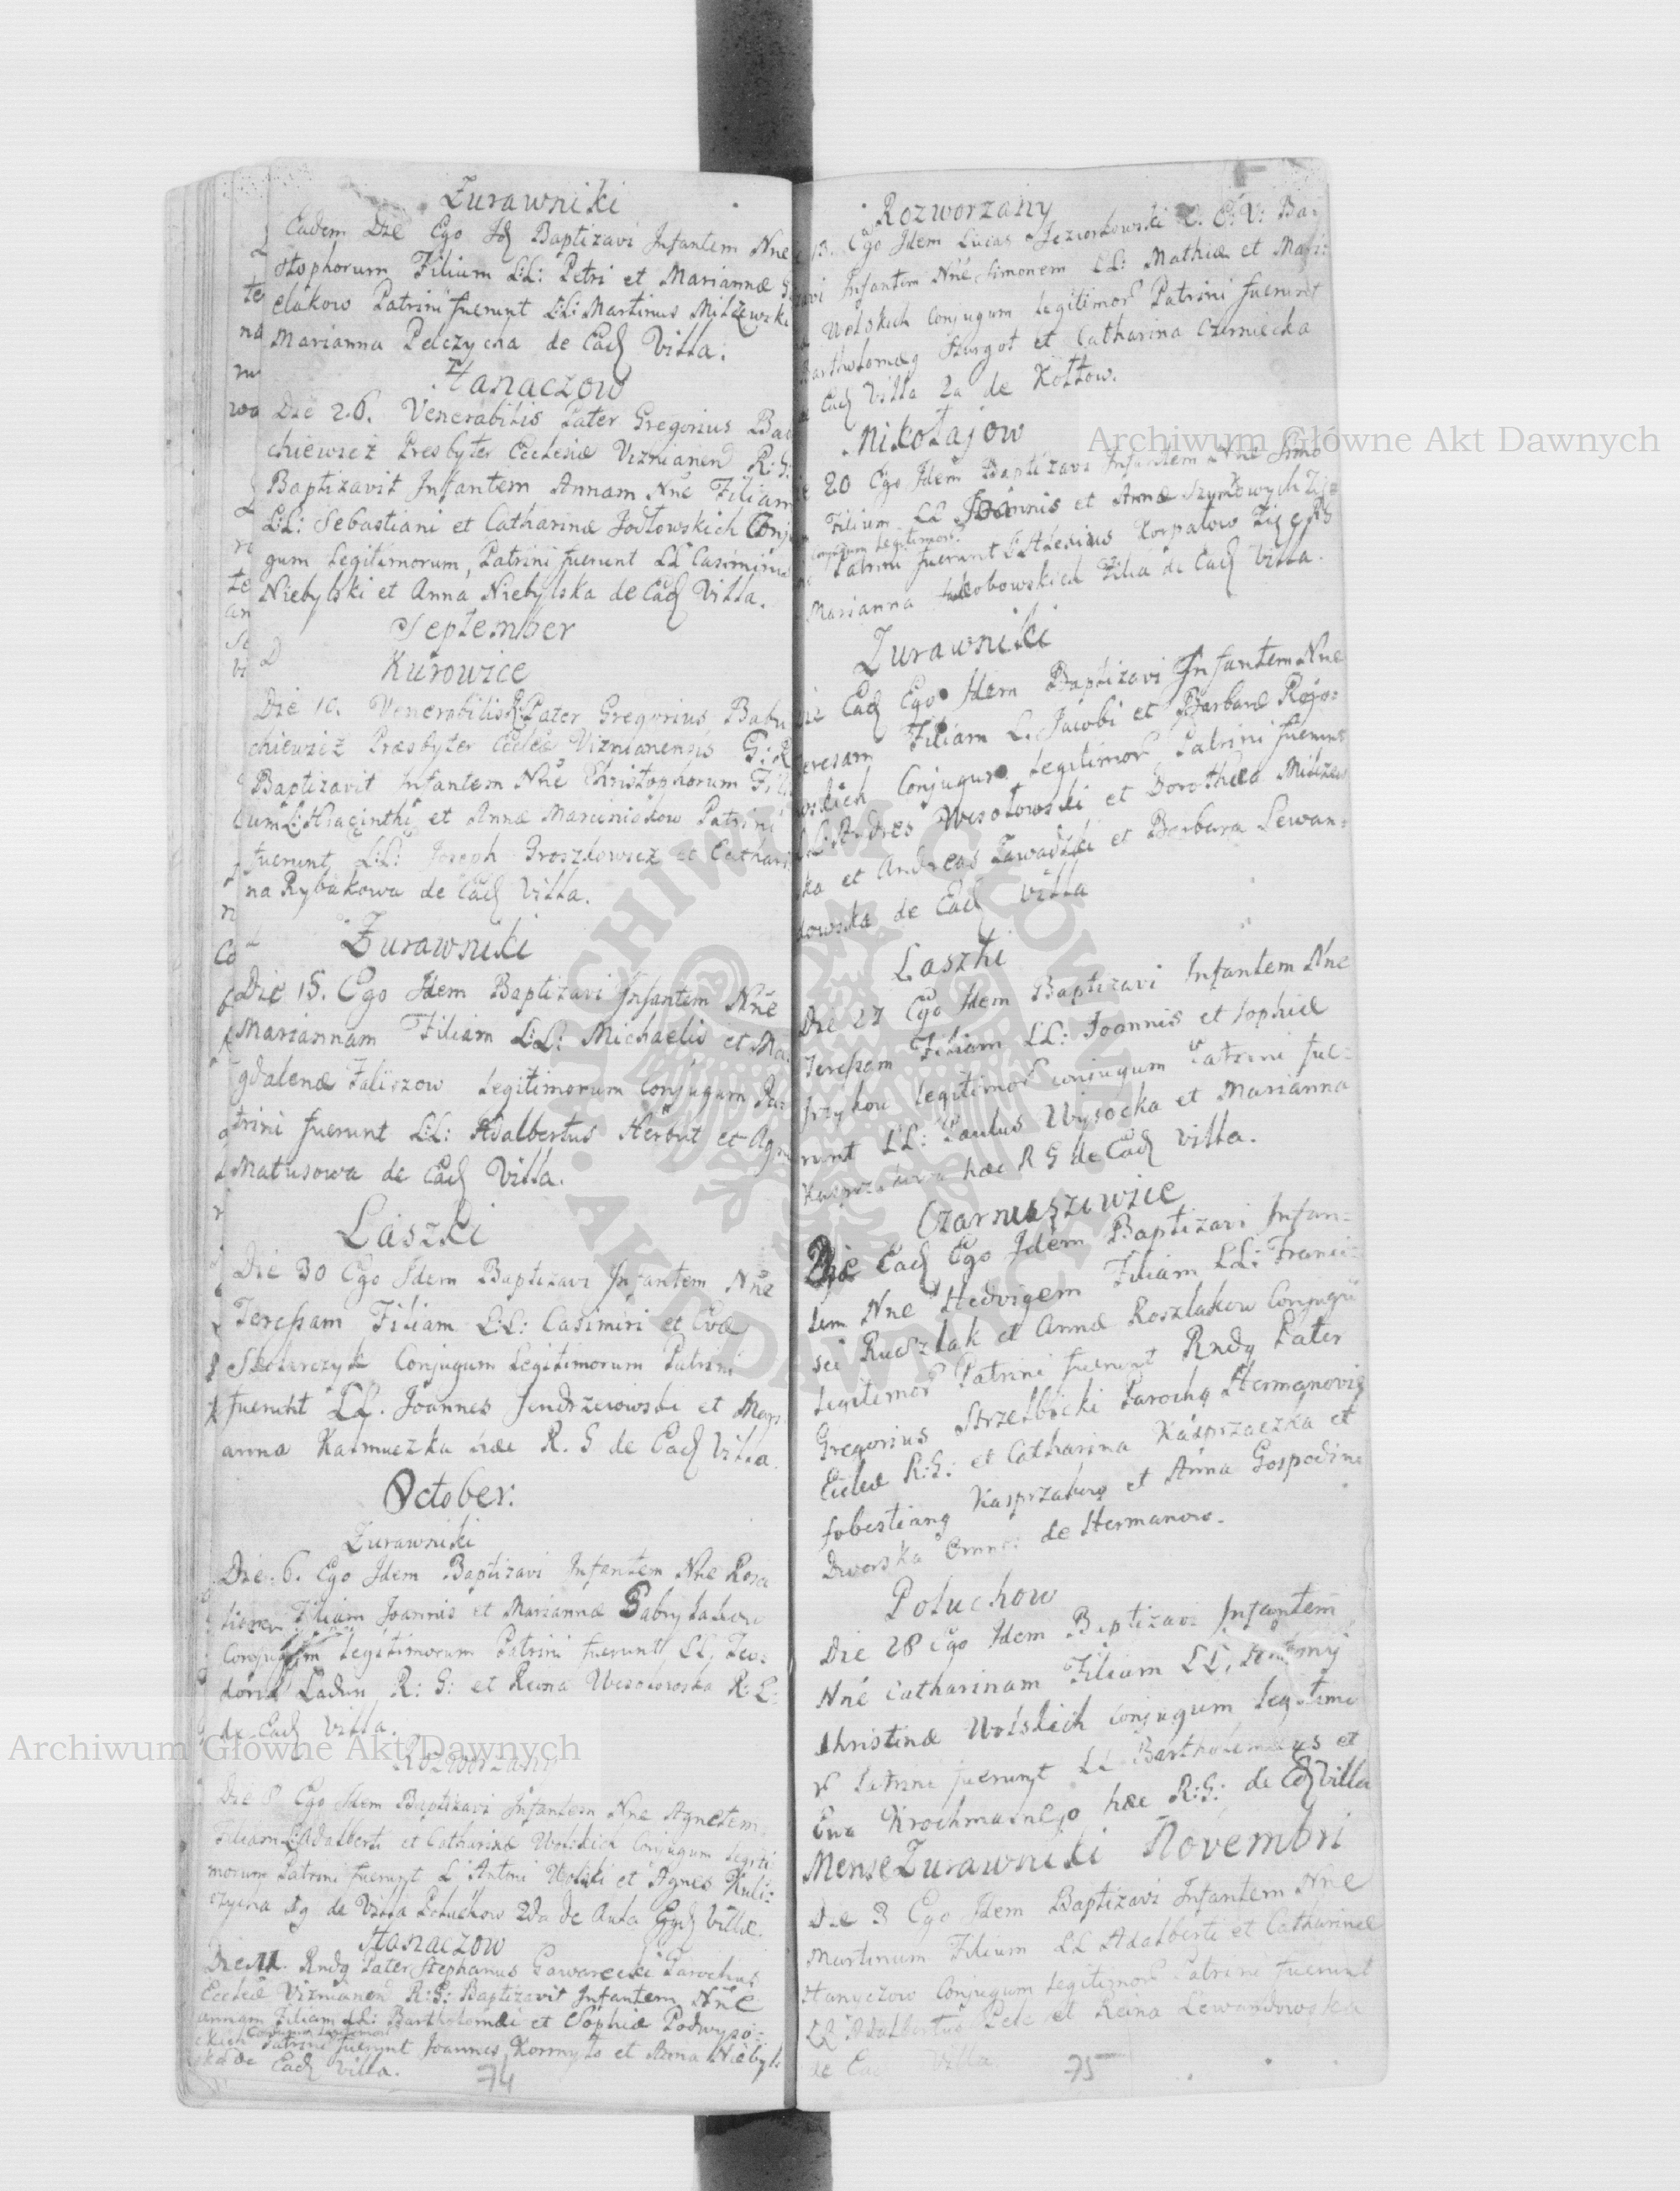 Żurawniki
Eadem Die Ego Id Baptizavi Infantem Nne
stophorum Filium L:L: Petri et Mariannæ
elakow Patrini fuerunt L:L: Martinus Milżewski
Marianna Pelczycha de Ead Villa.
Hanaczow
Die 26. Venerabilis Pater Gregorius Ba
chiewicz Presbyter Ecclesiæ Viznianen R: G:
Baptizavit Infantem Annam Nne Filiam
L:L: Sebastiani et Catharinæ Jodłowskich Conj
gum Legitimorum, Patrini fuerunt LL Casimirus
Niebylski et Anna Niebylska de Ead Villa.
September
Kurowice
Die 10. Venerabilis Pater Gregorius Babu
chiewicz Præsbyter Ecclæ Viznianensis G: R
Baptizavit Infantem Nne Christophorum Fili
um L: Hiacinthi et Annæ Marciniakow Patrini
fuerunt L:L: Joseph Groszkowicz et Cathari
na Rybakowa de Ead Villa.
Żurawniki
Die 15. Ego Idem Baptizavi Infantem Nne
Mariannam Filiam L:L: Michaelis et Ma
gdalenæ Faliszow Legitimorum Conjugum Pa
trini fuerunt L:L: Adalbertus Herbut et Agn
Matusowa de Ead Villa.
Laszki
Die 30 Ego Idem Baptizavi Infantem Nne
Teressam Filiam L:L: Casimiri et Evæ
Conjugum Legitimorum Patrini
fuerunt LL. Joannes Jendrzeiowski et Mari
anna Kazmuczka hæc R. G de Ead Villa.
October.
Żurawniki
Die 6. Ego Idem Baptizavi Infantem Nne Rosa
liam Filiam Joannis et Mariannæ Gabrylakow
Conjugum Legitimorum Patrini fuerunt LL Teo:
Ladun R: G: et Reina Wesołowska R: L:
de Ead Villa.
Rozworzany
Die 8 Ego Idem Baptizavi Infantem Nne Agnetem
Filiam L: Adalberti et Catharinæ Wolskich Conjugum Legiti
morum Patrini fuerunt L Antoni Wolski et Agnes Kuli:
czycha de Villa Poluchow 2da de Aula Villæ.
Hanaczow
Die 11. Rndg Pater Stephanus Gawarecki Parochus
Ecclæ Viznianen R: G: Baptizavit Infantem Nne
Annam Filiam LL: Bartholomæi et Sophiæ Podwyso:
ckich Conjugum Legitimor
Patrini fuerunt Joannes Kormyło et Anna Niebyl
ska de Ead Villa.
74
Rozworzany
13. Ego Idem Lucas Jeziorkowski C. E: V: Bap
avi Infantem Nne Simonem LL: Mathiæ et Mari:
Wolskich Conjugum Legitimor Patrini fuerunt
Bartholomæg Szurgot et Catharina Czerniecka
Ead Villa 2a de Kottow.
Mikołajow
20 Ego Idem Baptizavi Infantem Nne Simo
Filium LL Joannis et Annæ Szymkowych
Conjugum Legitimor
Patrini fuerunt L Alexius Korpalow Zięc
Marianna Jakobowskich Filia de Ead Villa.
Żurawniki
Die Ead Ego Idem Baptizavi Infantem Nne
eresam Filiam L. Jacobi et Barbaræ Rogo:
wskich Conjugum Legitimor Patrini fuerunt
LL: Andres Wesołowski et Dorothea Milżew
ka et Andreas Zawadzki et Barbara Lewan:
dowska de Ead Villa
Laszki
Die 27 Ego Idem Baptizavi Infantem Nne
Teressam Filiam LL: Joannis et Sophiæ
Legitimor conjugum Patrini fue:
runt LL: Paulus Wysocka et Marianna
hæc R G de Ead Villa.
Czarnuszowice
Die Ead Ego Idem Baptizavi Infan:
tem Nne Hedvigem Filiam LL: Franci:
sci Ruszlak et Annæ Roszlakow Conjugu
Legitimor Patrini fuerunt Rndg Pater
Gregorius Strzelbicki Parochg Hermanovie
Ecclæ R: G: et Catharina Kasprzaczka et
Sobestiang Kasprzakow et Anna Gospodini
Dworska Omnes de Hermanow.
Poluchow
Die 28 Ego Idem Baptizavi Infantem
Nne Catharinam Filiam LL:
Christinæ Wolskich Conjugum Legitimo
r Patrini fuerunt LL Bartholemæus et
Ewa Krochmalnego hæc R: G: de Ead Villa
Mense Żurawniki Novembri
Die 3 Ego Idem Baptizavi Infantem Nne
Martinum Filium LL Adalberti et Catharinæ
Hanyczow Conjugum Legitimor Patrini fuerunt
LL Adalbertus Pelc et Reina Lewandowska
de Ead Villa
75
Archiwum Główne Akt Dawnych
Archiwum Główne Akt Dawnych
ARCHIWUM GŁÓWNE
AKT DAWNYCH